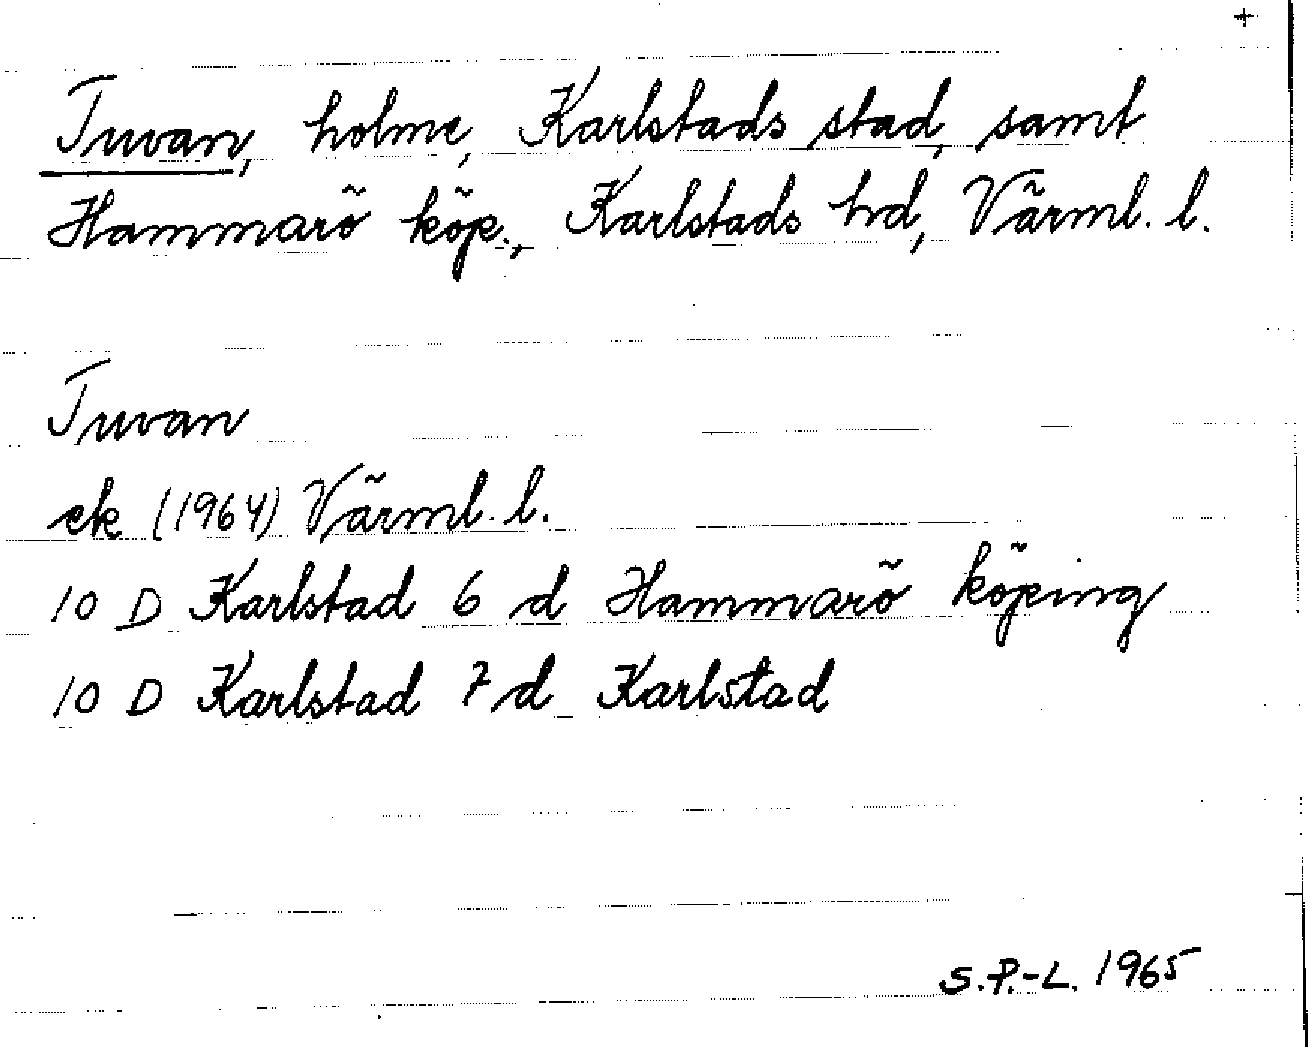 +
Tuvan, holme, Karlstads stad, samt
Hammarö köp., Karlstads hd, Värml. l.
Tuvan
ek (1964) Värml. l.
10 D Karlstad 6 d Hammarö köping
10 D Karlstad 7 d Karlstad
S.P.-L. 1965